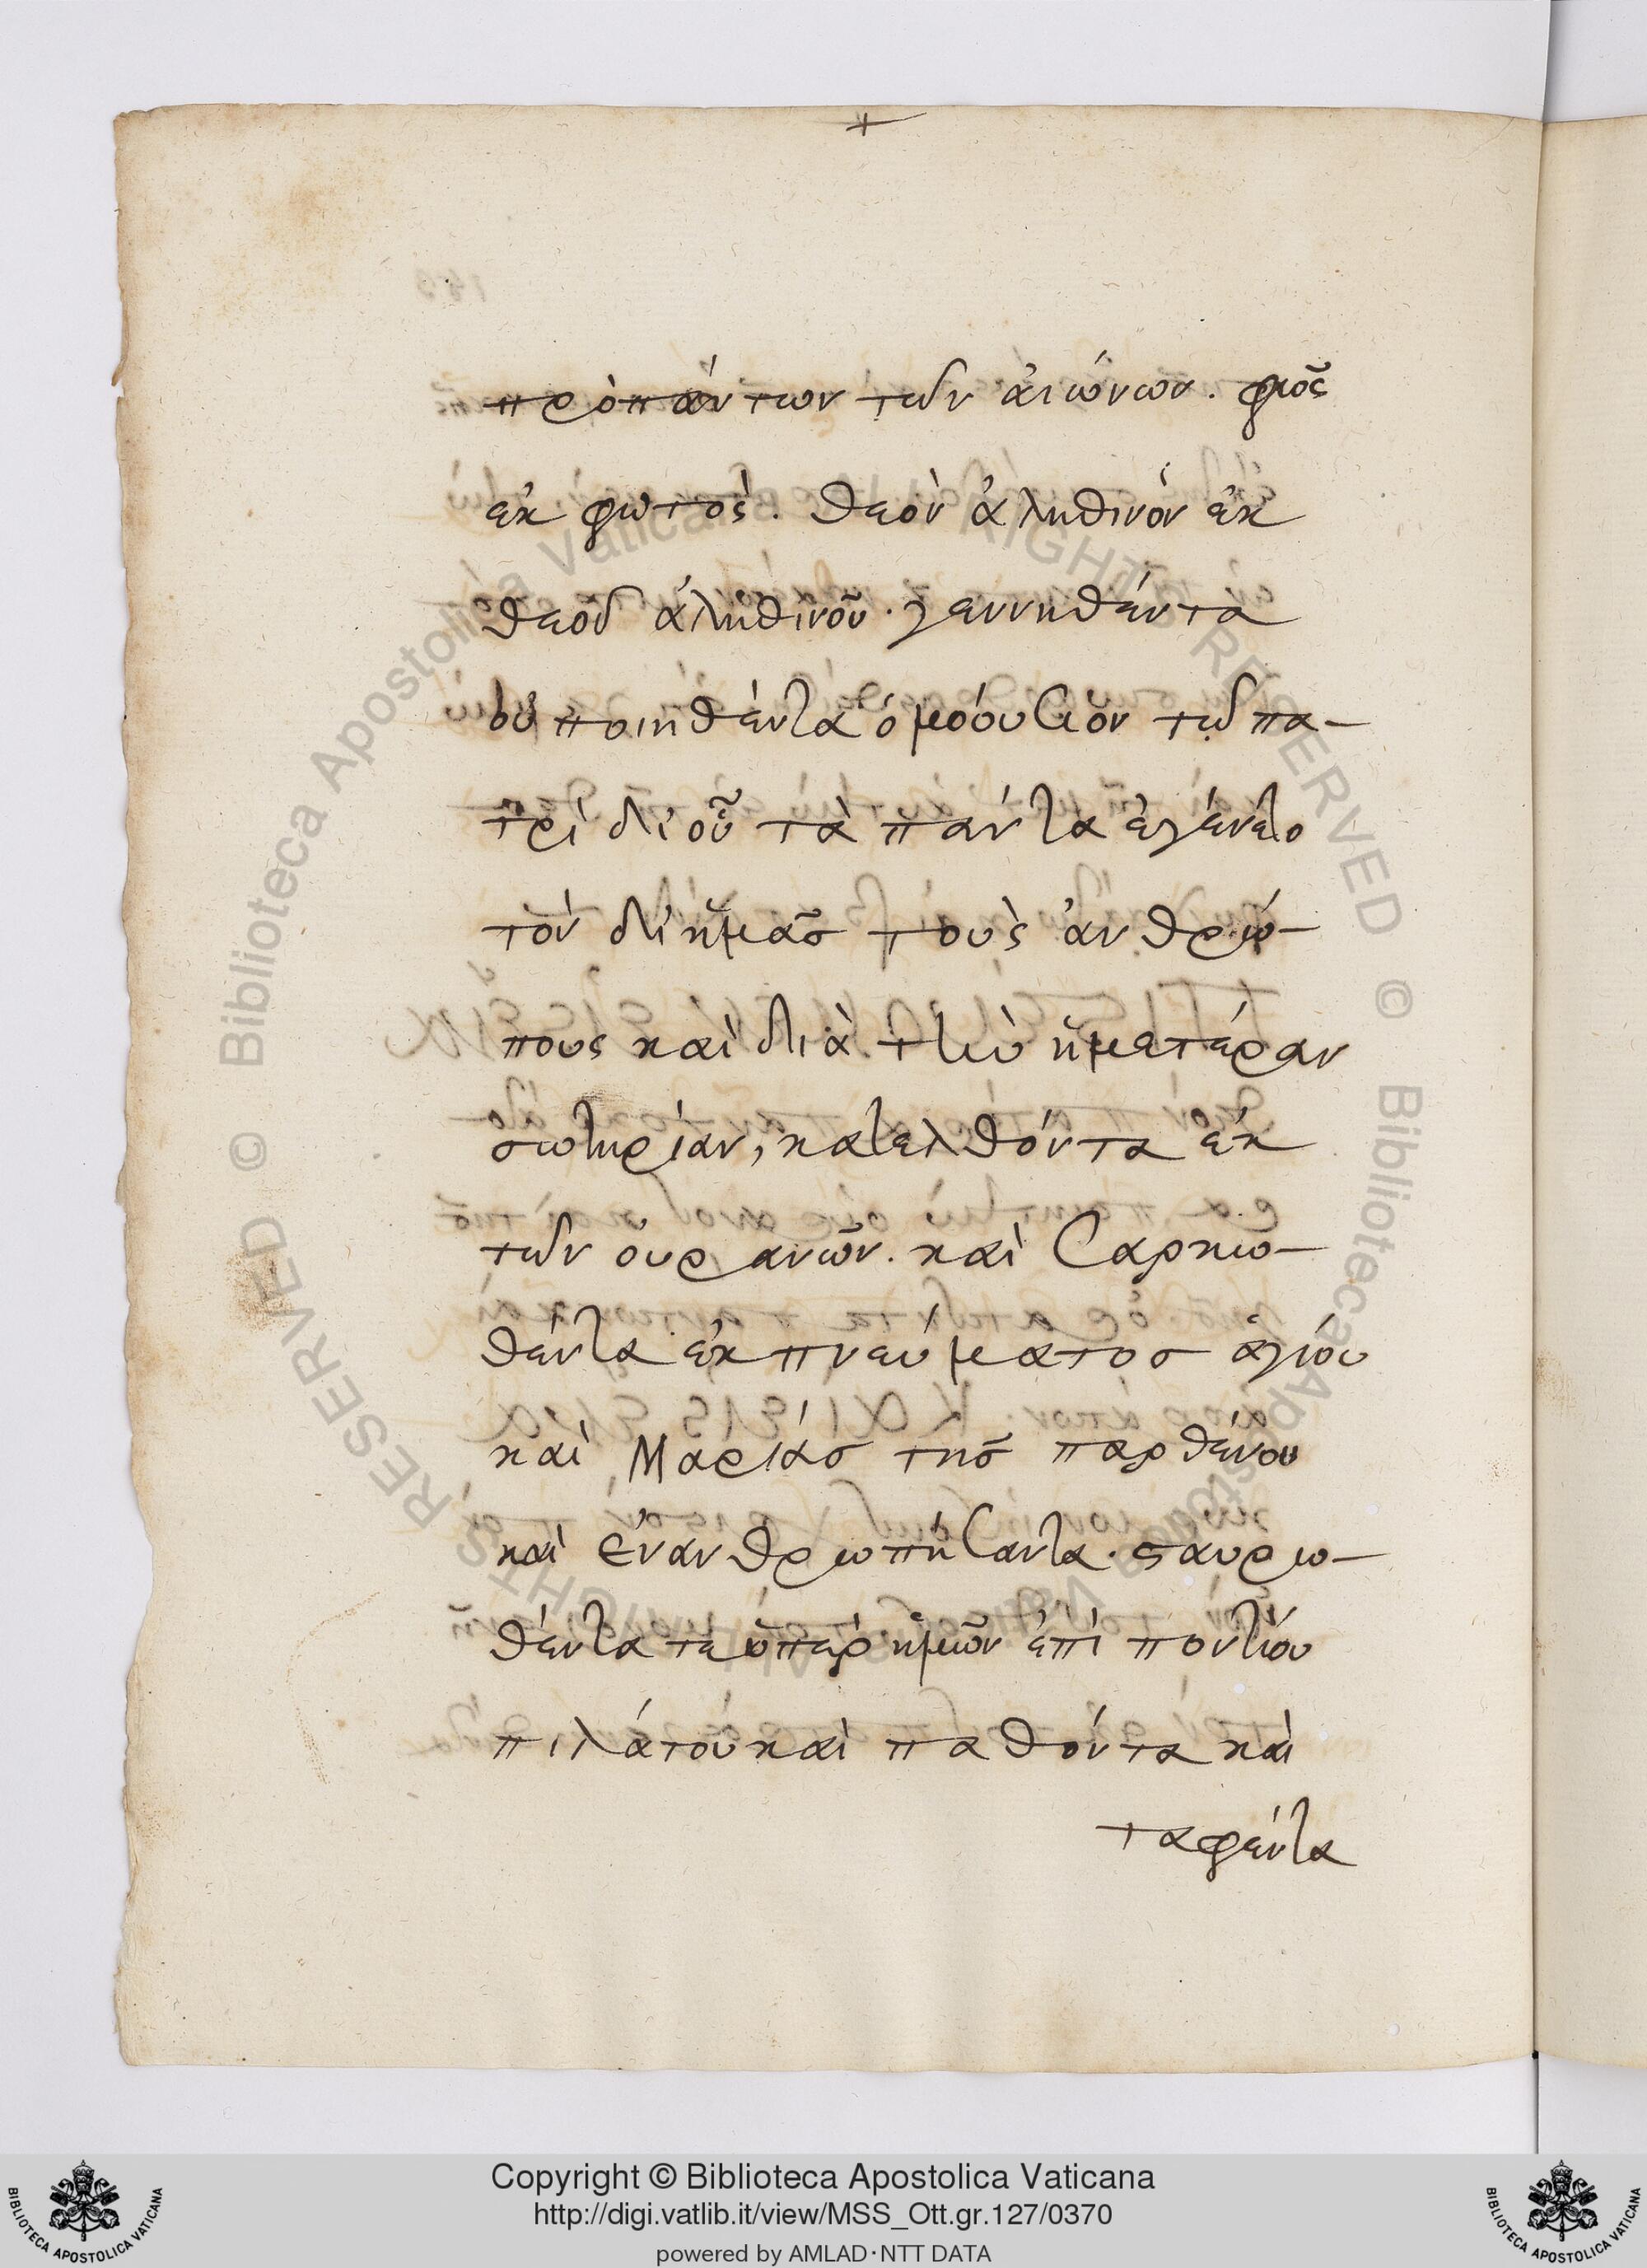 +
πρὸπάντων τῶν ἀιώνων. φῶς
ἐκ φωτὸς. θεὸν ἀληθινὸν ἐκ
θεοῦ ἀληθινοῦ. γεννηθέντα
οὐ ποιηθέντα ὁμοόυσιον τῷ πα-
τρί δι' οὗ τὰ πάντα ἐγένετο
τὸν δι' ἡμᾶσ τοὺς ἀνθρώ-
πους καὶ διὰ τὴν ἡμετέραν
σωτηρίαν, κατελθόντα ἐκ
τῶν ουρανῶν. καὶ σαρκω-
θέντα ἐκ πνεύματοσ ἁγίου
καὶ Μαρίασ τῆσ παρθένου
καὶ ἐνανθρωπήσαντα. σταυρω-
θέντα τε ὑπὲρ ἡμῶν ἐπὶ ποντίου
πιλάτου καὶ παθόντα καὶ
ταφέντα
Copyright © Biblioteca Apostolica Vaticana
http://digi.vatlib.it/view/MSS_Ott.gr.127/0370
powered by AMLAD·NTT DATA
BIBLIOTECA APOSTOLICA VATICANA
BIBLIOTECA APOSTOLICA VATICANA